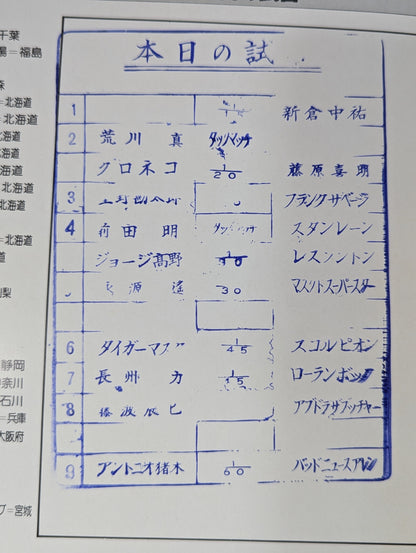 千葉
＝福島
森
＝北海道
＝北海道
北海道
北海道
北海道
北海道
北海道
＝北海道
道
梨
静岡
奈川
石川
＝兵庫
大阪府
＝宮城
本日の試
1 新倉中祐
2 荒川 真 タッグマッチ
クロネコ 1/20 藤原喜明
3 フランクサベージ
4 前田 明 スタンレーン
ジョージ高野 1/30
源 遥 30 マスクトスーパースター
6 タイガーマス 1/45 スコルピオン
7 長州 力 1/45 ローランボック
8 藤波辰巳 アブドラザブッチャー
9 アントニオ猪木 1/60 バッドニュースアレン